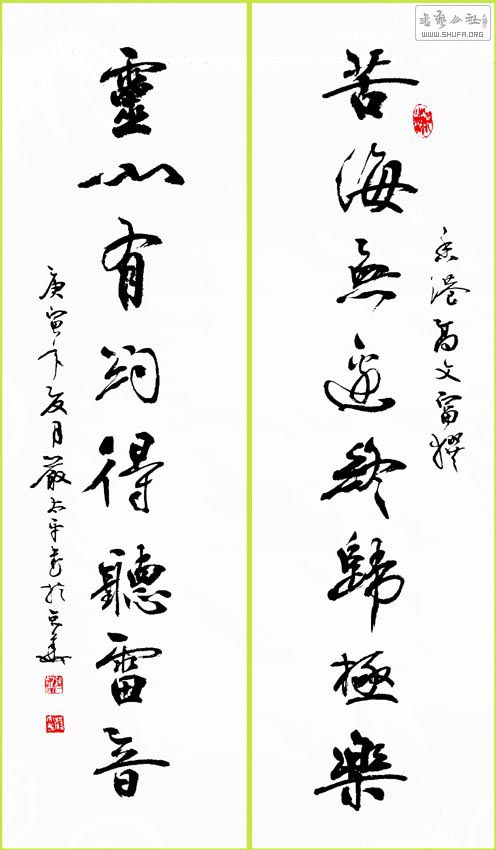 苦海無邊終歸極樂
香港高文富撰
靈山有約得聽雷音
庚寅年夏月嚴太平書於京華
书艺公社
WWW.SHUFA.ORG